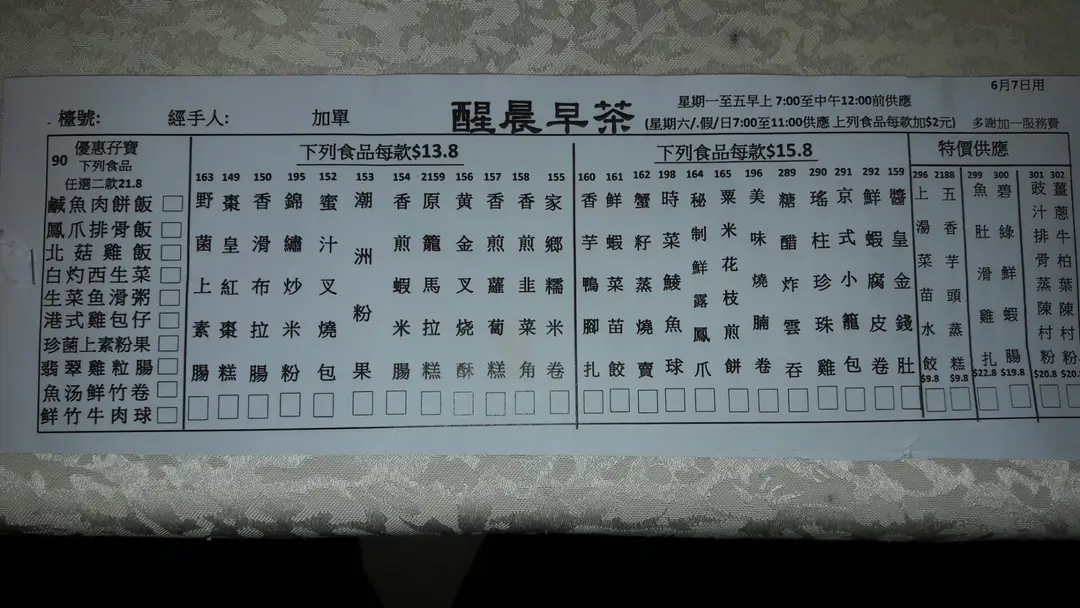 6月7日用
檯號:
經手人:
加單
醒晨早茶
星期一至五早上 7:00至中午12:00前供應
(星期六/.假/日7:00至11:00供應 上列食品每款加$2元)
多謝加一服務費
90
優惠孖寶
下列食品
任選二款21.8
鹹魚肉餅飯
鳳爪排骨飯
北菇雞飯
白灼西生菜
生菜鱼滑粥
港式雞包仔
珍菌上素粉果
翡翠雞粒腸
魚汤鮮竹卷
鮮竹牛肉球
下列食品每款$13.8
163 野菌上素腸
149 棗皇紅棗糕
150 香滑布拉腸
195 錦繡炒米粉
152 蜜汁叉燒包
153 潮洲粉果
154 香煎蝦米腸
2159 原籠馬拉糕
156 黄金叉烧酥
157 香煎蘿蔔糕
158 香煎韭菜角
155 家鄉糯米卷
下列食品每款$15.8
160 香芋鴨腳扎
161 鮮蝦菜苗餃
162 蟹籽蒸燒賣
198 時菜鯪魚球
164 秘制鮮露鳳爪
165 粟米花枝煎餅
196 美味燒腩卷
289 糖醋炸雲吞
290 瑤柱珍珠雞
291 京式小籠包
292 鮮蝦腐皮卷
159 醬皇金錢肚
特價供應
296 上湯菜苗水餃 $9.8
2188 五香芋頭蒸糕 $9.8
299 魚肚滑雞扎 $22.8
300 碧綠鮮蝦腸 $19.8
301 豉汁排骨蒸陳村粉 $20.8
302 薑蔥牛柏葉陳村粉 $20.